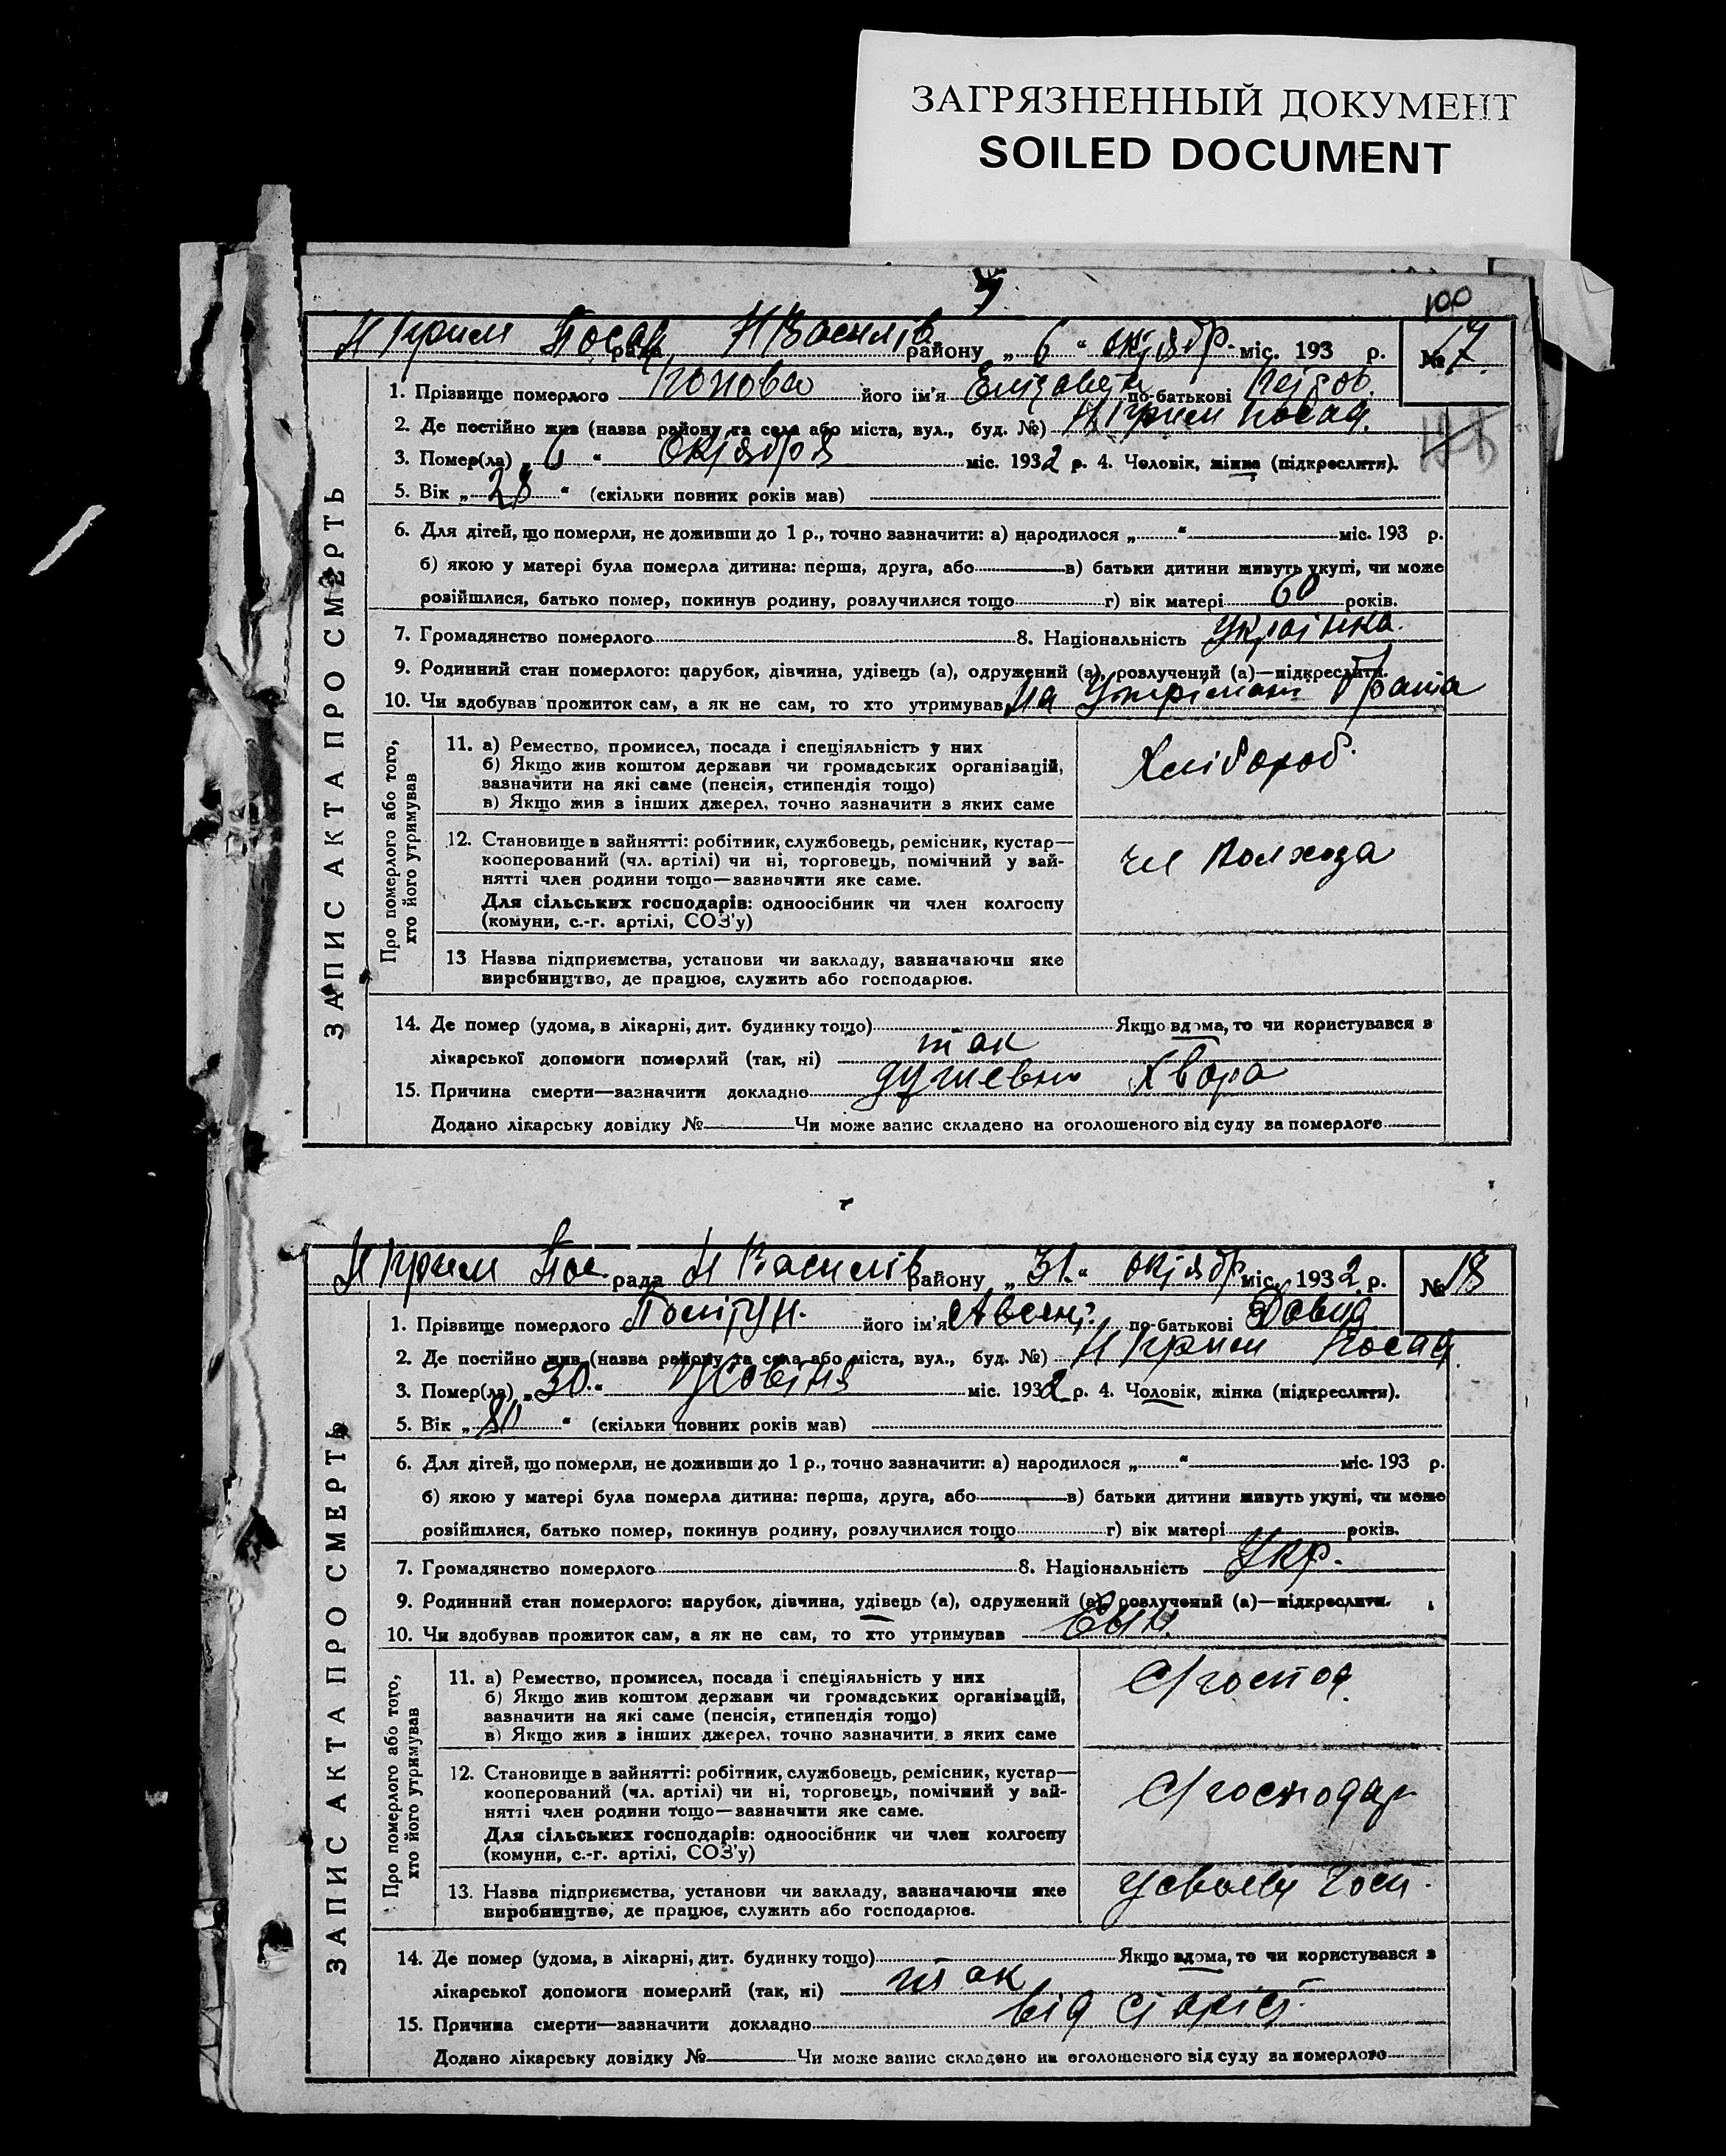 ЗАГРЯЗНЕННЫЙ ДОКУМЕНТ
SOILED DOCUMENT
100
Н Крим Посад рада Н Василів району „ 6 “ октябр. міс. 193 р. № 17.
1. Прізвище померлого його ім'я Єлізавета по-батькові
2. Де постійно жив (назва району та села або міста, вул., буд. №) Н Крим посад.
3. Помер(ла) „ 6 “ октября міс. 1932 р. 4. Чоловік, жінка (підкреслити).
5. Вік „ 28 “ (скільки повних років мав)
6. Для дітей, що померли, не доживши до 1 р., точно зазначити: а) народилося „ “ міс. 193 р.
б) якою у матері була померла дитина: перша, друга, або в) батьки дитини живуть укупі, чи може
розійшлися, батько помер, покинув родину, розлучилися тощо г) вік матері 60 років.
7. Громадянство померлого 8. Національність Українка.
9. Родинний стан померлого: парубок, дівчина, удівець (а), одружений (а), розлучений (а)—підкреслити.
10. Чи здобував прожиток сам, а як не сам, то хто утримував На утрімані брата
ЗАПИС АКТА ПРО СМЕРТЬ
Про померлого або того,
хто його утримував
11. а) Ремество, промисел, посада і спеціяльність у них
б) Якщо жив коштом держави чи громадських організацій,
зазначити на які саме (пенсія, стипендія тощо)
в) Якщо жив з інших джерел, точно зазначити з яких саме
Хлібороб.
12. Становище в зайнятті: робітник, службовець, ремісник, кустар—
кооперований (чл. артілі) чи ні, торговець, помічний у зай-
нятті член родини тощо—зазначити яке саме.
Для сільських господарів: одноосібник чи член колгоспу
(комуни, с.-г. артілі, СОЗ'у)
чл Колхоза
13 Назва підприємства, установи чи закладу, зазначаючи яке
виробництво, де працює, служить або господарює.
14. Де помер (удома, в лікарні, дит. будинку тощо) Якщо вдома, то чи користувався з
лікарської допомоги померлий (так, ні) так
15. Причина смерти—зазначити докладно душевно хвора
Додано лікарську довідку № Чи може запис складено на оголошеного від суду за померлого
Н Крим Пос рада Н Василів району „ 31. “ октябр міс. 1932 р. № 18
1. Прізвище померлого його ім'я по-батькові Давид
2. Де постійно жив (назва району та села або міста, вул., буд. №) Н Крим Посад.
3. Помер(ла) „ 30. “ Жовтня міс. 1932 р. 4. Чоловік, жінка (підкреслити).
5. Вік „ 80 “ (скільки повних років мав)
6. Для дітей, що померли, не доживши до 1 р., точно зазначити: а) народилося „ “ міс. 193 р.
б) якою у матері була померла дитина: перша, друга, або в) батьки дитини живуть укупі, чи може
розійшлися, батько помер, покинув родину, розлучилися тощо г) вік матері років.
7. Громадянство померлого 8. Національність Укр.
9. Родинний стан померлого: парубок, дівчина, удівець (а), одружений (а), розлучений (а)—підкреслити.
10. Чи здобував прожиток сам, а як не сам, то хто утримував Сын.
ЗАПИС АКТА ПРО СМЕРТЬ
Про померлого або того,
хто його утримував
11. а) Ремество, промисел, посада і спеціяльність у них
б) Якщо жив коштом держави чи громадських організацій,
зазначити на які саме (пенсія, стипендія тощо)
в) Якщо жив з інших джерел, точно зазначити з яких саме
С/господ.
12. Становище в зайнятті: робітник, службовець, ремісник, кустар—
кооперований (чл. артілі) чи ні, торговець, помічний у зай-
нятті член родини тощо—зазначити яке саме.
Для сільських господарів: одноосібник чи член колгоспу
(комуни, с.-г. артілі, СОЗ'у)
С/господар
13. Назва підприємства, установи чи закладу, зазначаючи яке
виробництво, де працює, служить або господарює.
У своєму госп.
14. Де помер (удома, в лікарні, дит. будинку тощо) Якщо вдома, то чи користувався з
лікарської допомоги померлий (так, ні) так
15. Причина смерти—зазначити докладно від старіст.
Додано лікарську довідку № Чи може запис складено на оголошеного від суду за померлого